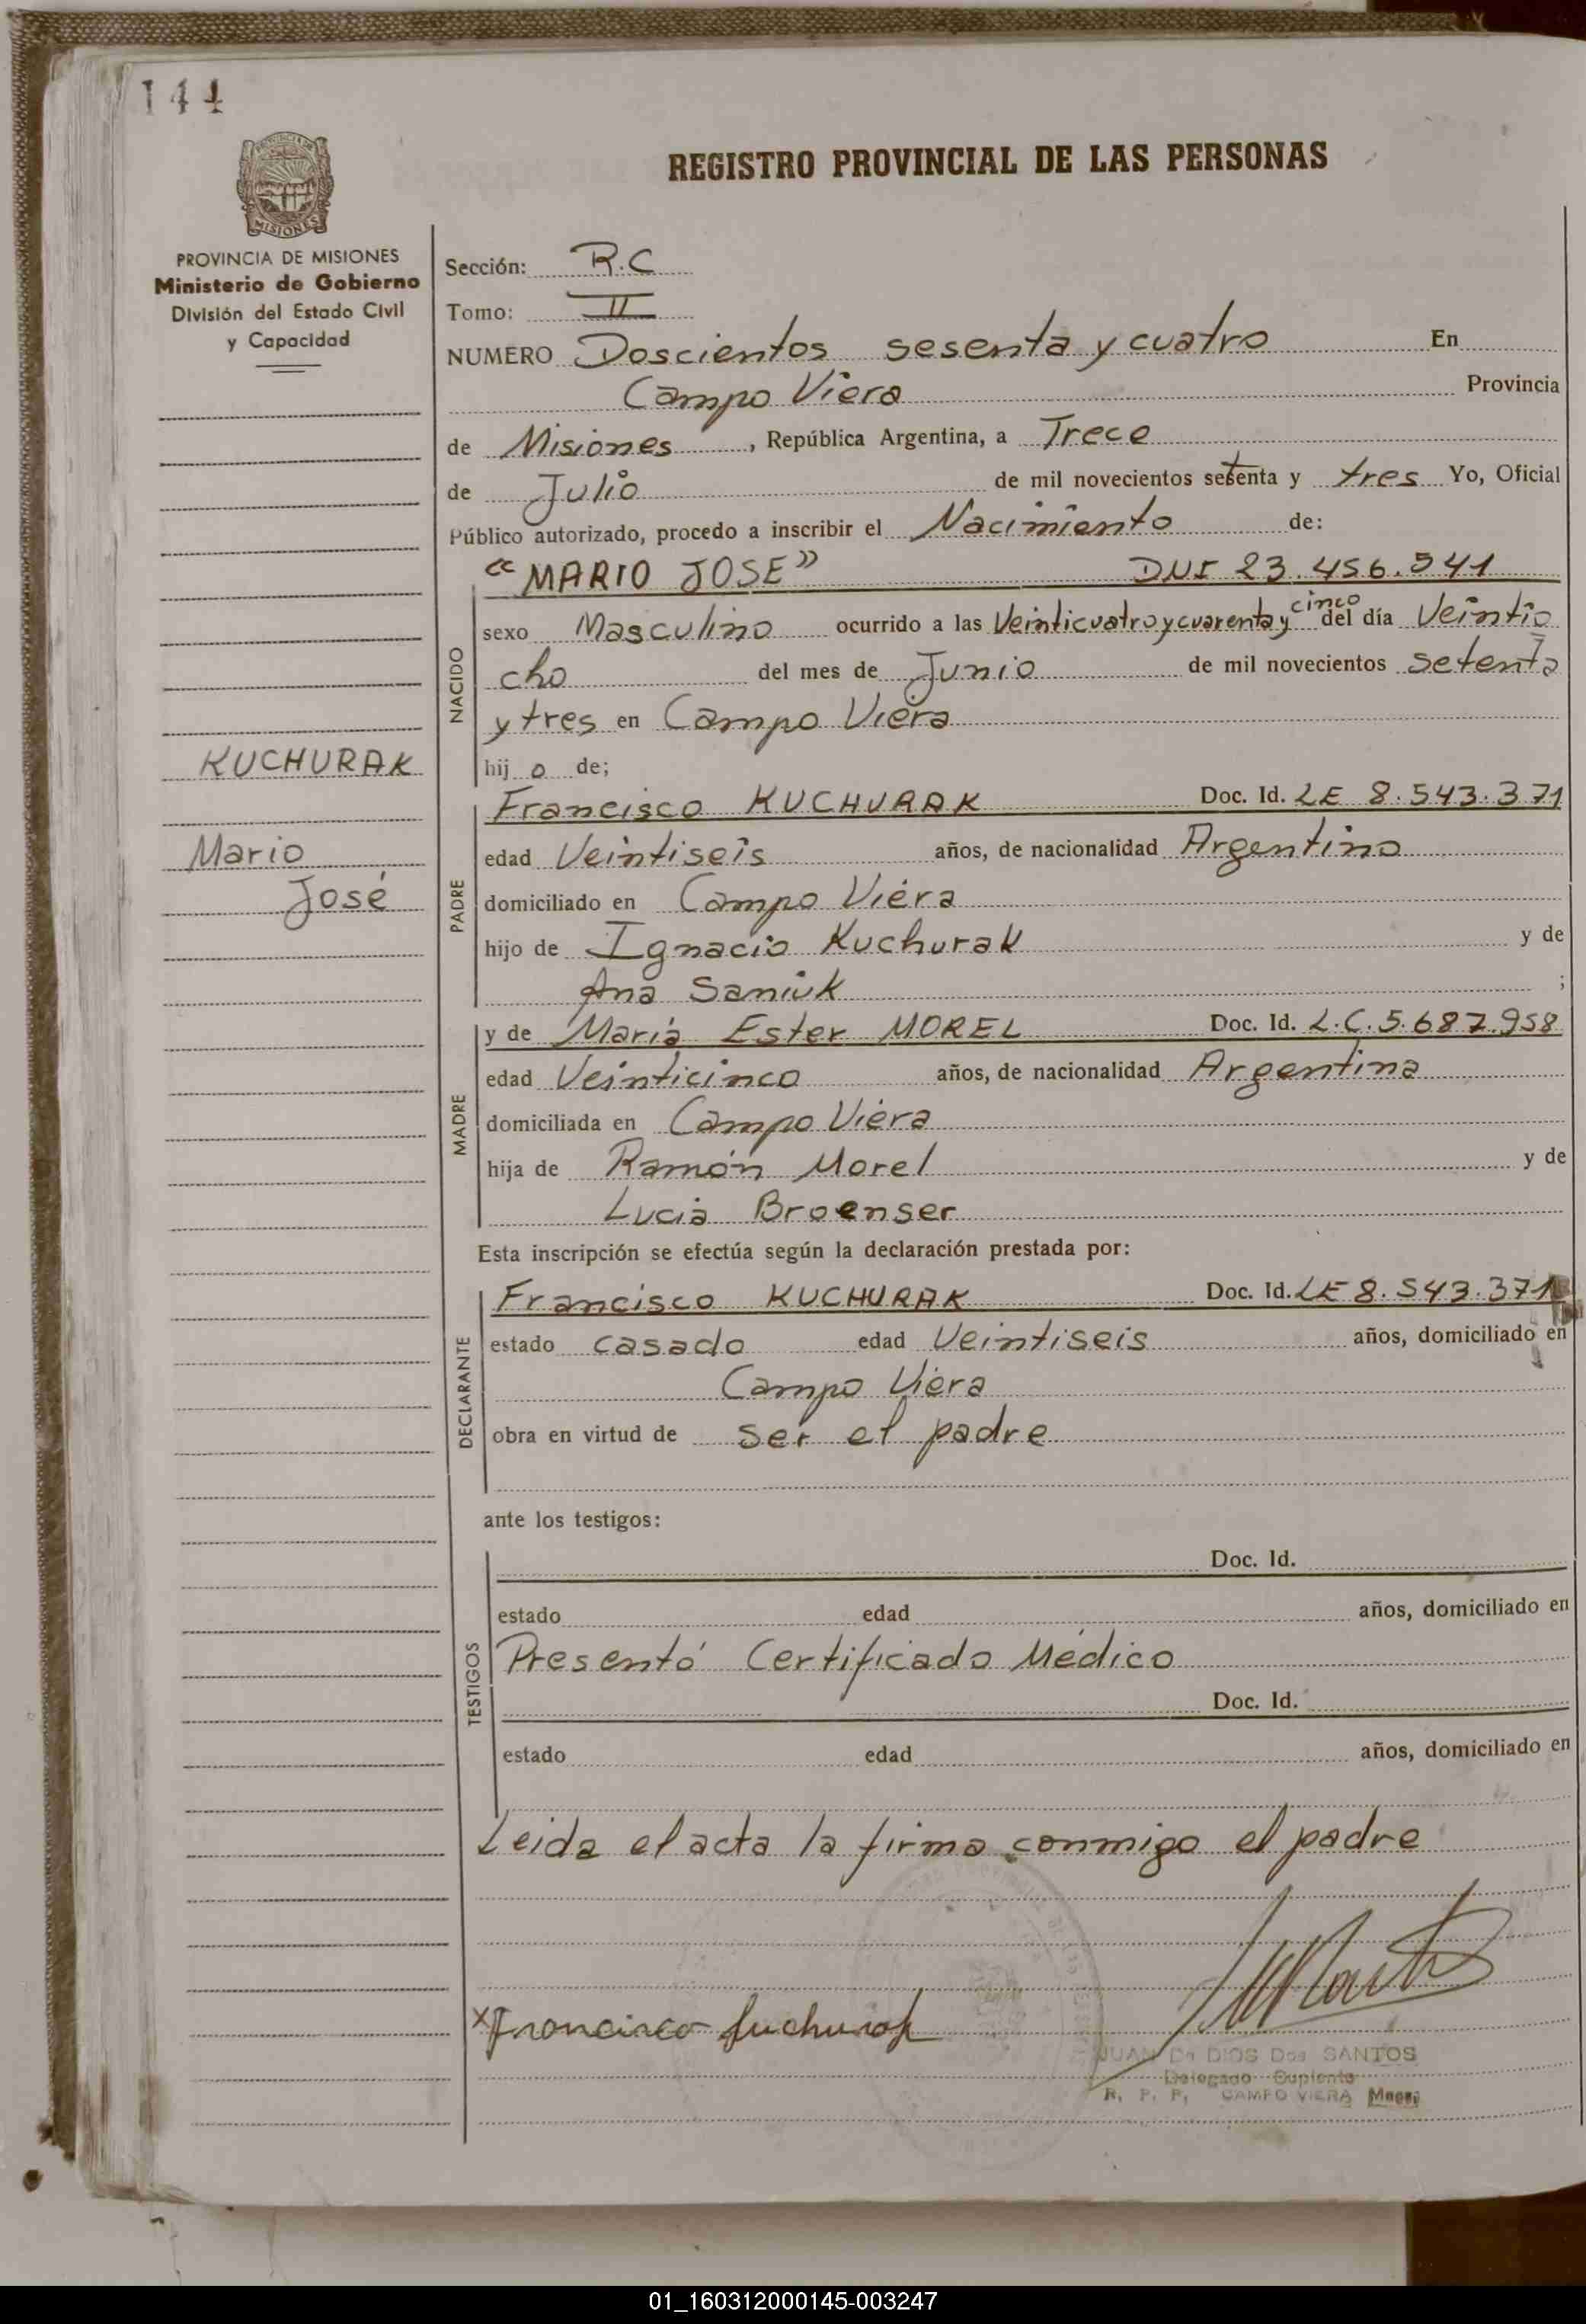 144
PROVINCIA DE
MISIONES
PROVINCIA DE MISIONES
Ministerio de Gobierno
División del Estado Civil
y Capacidad
KUCHURAK
Mario
José
REGISTRO PROVINCIAL DE LAS PERSONAS
Sección: R.C
Tomo: II
NUMERO Doscientos sesenta y cuatro En
Campo Viera Provincia
de Misiones, República Argentina, a Trece
de Julio de mil novecientos setenta y tres Yo, Oficial
Público autorizado, procedo a inscribir el Nacimiento de:
"MARIO JOSE" DNI 23.456.541
NACIDO
sexo Masculino ocurrido a las Veinticuatro y cuarenta y cinco del día Veintio
cho del mes de Junio de mil novecientos setenta
y tres en Campo Viera
hijo de;
PADRE
Francisco KUCHURAK Doc. Id. LE 8.543.371
edad Veintiseis años, de nacionalidad Argentino
domiciliado en Campo Viera
hijo de Ignacio Kuchurak y de
Ana Saniuk ;
MADRE
y de María Ester MOREL Doc. Id. L.C. 5.687.958
edad Veinticinco años, de nacionalidad Argentina
domiciliada en Campo Viera
hija de Ramón Morel y de
Lucia Broenser
Esta inscripción se efectúa según la declaración prestada por:
DECLARANTE
Francisco KUCHURAK Doc. Id. LE 8.543.371
estado casado edad Veintiseis años, domiciliado en
Campo Viera
obra en virtud de ser el padre
ante los testigos:
TESTIGOS
Doc. Id.
estado edad años, domiciliado en
Presentó Certificado Médico
Doc. Id.
estado edad años, domiciliado en
Leida el acta la firma conmigo el padre
x Francisco Kuchurak
JUAN De DIOS Dos SANTOS
Delegado Suplente
R. P. P. CAMPO VIERA
01_160312000145-003247